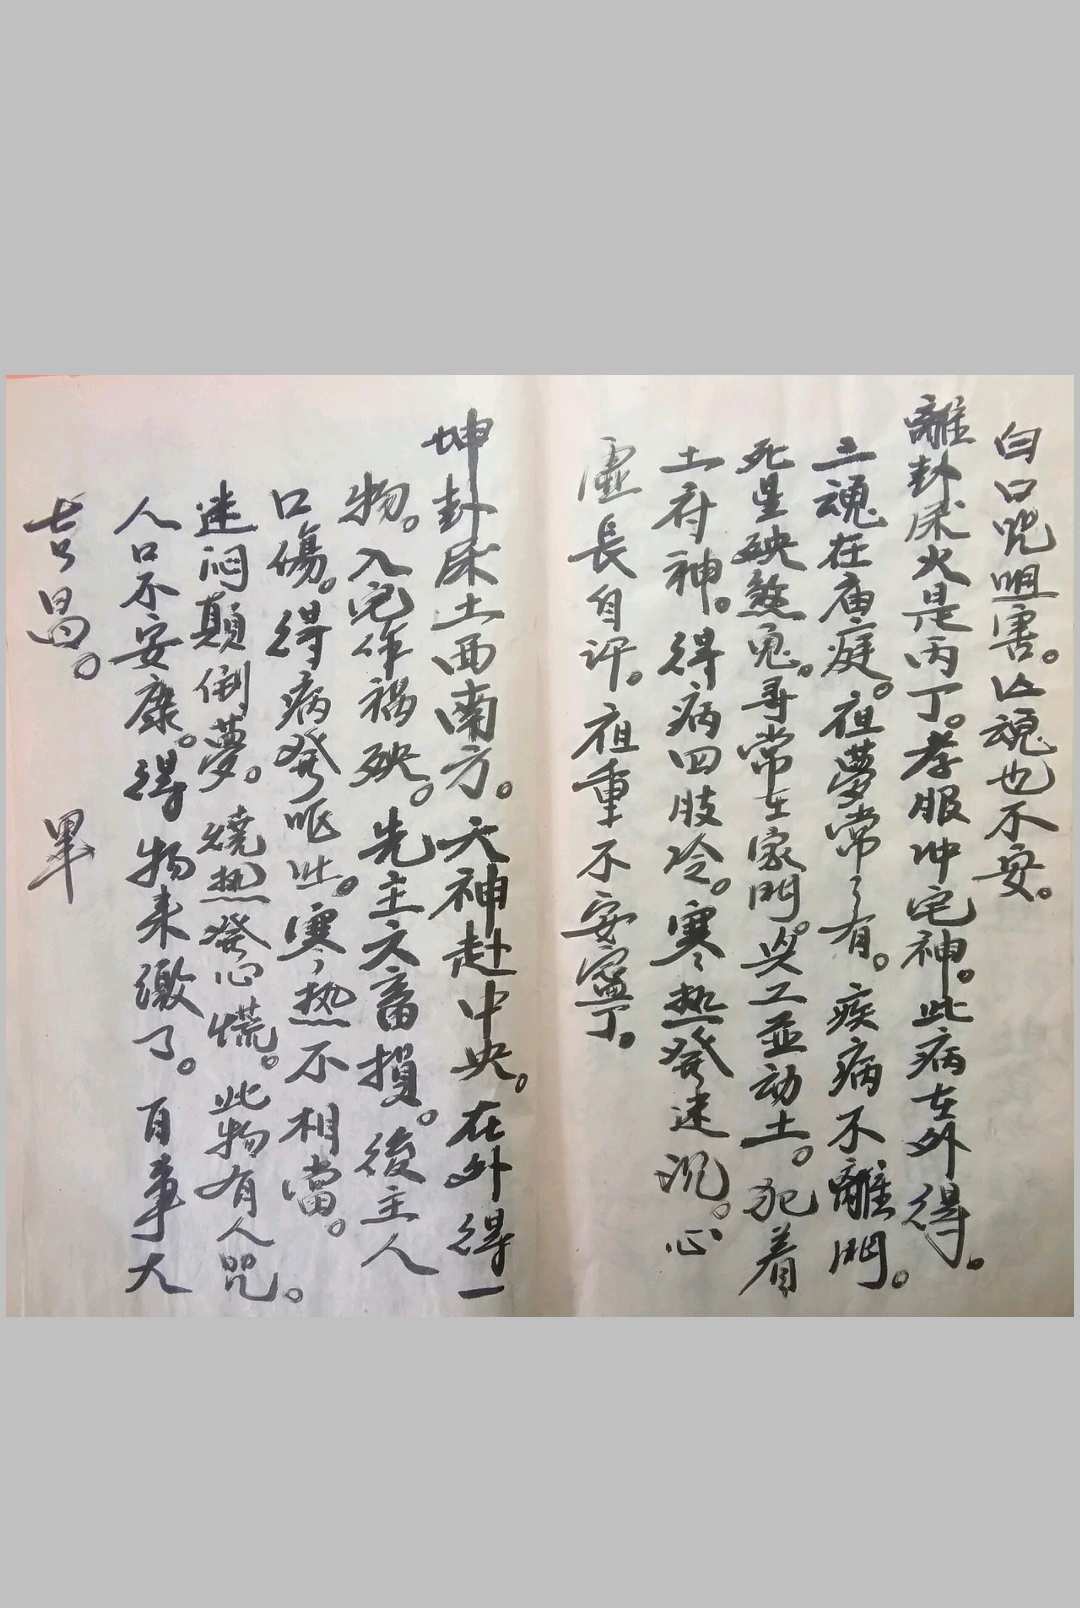 白口咒咀害。亡魂也不安。
離卦屎火是丙丁。孝服冲宅神。此病在外得。
三魂在庙庭。祖夢常々有。疾病不離門。
死星殃煞鬼。尋常在家門。兴工並动土。犯着
土府神。得病四肢冷。寒々热發迷沉。心
虚長自讶。祖重不安寧。
坤卦屎土西南方。六神赴中央。在外得一
物。入宅作禍殃。先主六畜損。後主人
口傷。得病發呕吐。寒々热不相當。
迷闷顛倒夢。燒热發心慌。此物有人咒。
人口不安康。得物来缴了。百事大
吉昌。 畢